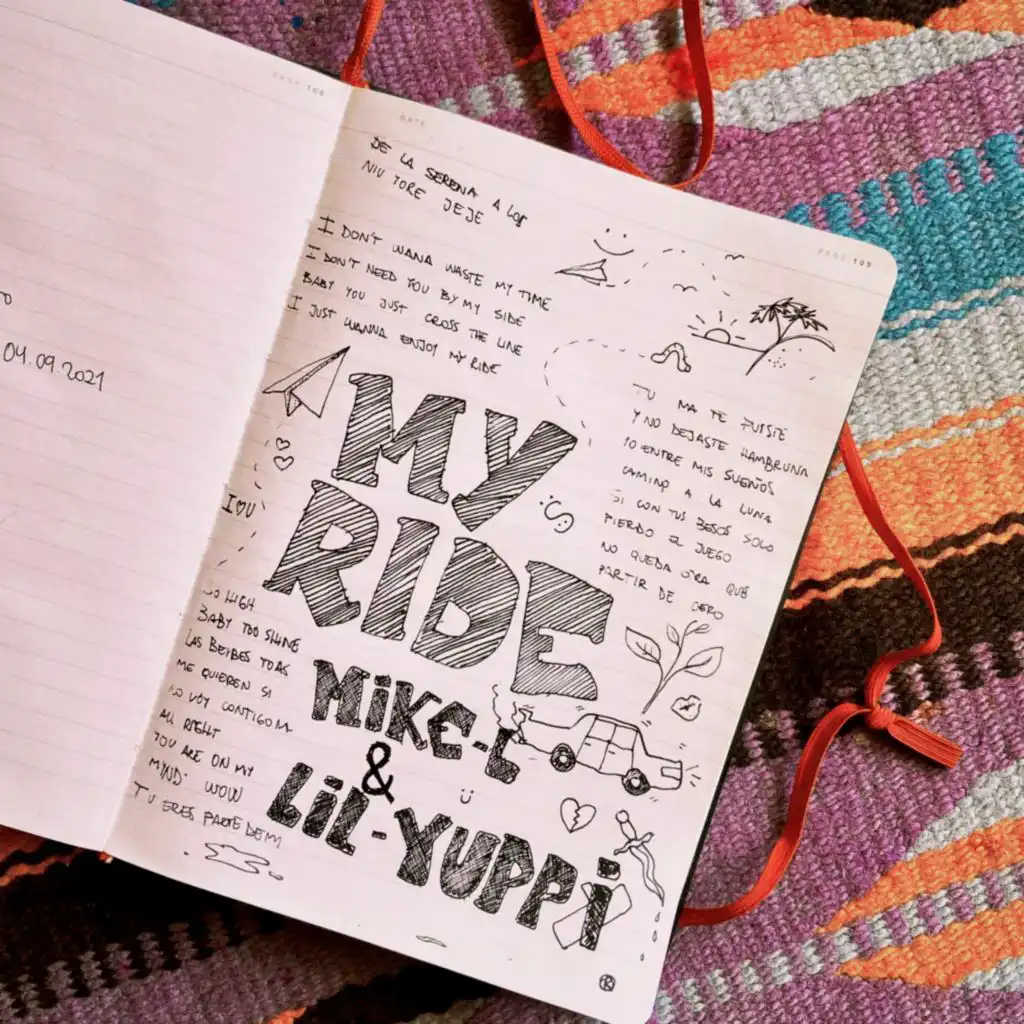 PAGE 108
TO
04.09.2021
DATE
PAGE 109
DE LA SERENA A LOS
NIU YORE JEJE
I DON'T WANA WASTE MY TIME
I DON'T NEED YOU BY MY SIDE
BABY YOU JUST CROSS THE LINE
I JUST WANNA ENJOY MY RIDE
MY
RIDE
MIKE-L
&
LIL-YUPPI
I♡U
TU MA TE FUISTE
Y NO DEJASTE HAMBRUNA
YO ENTRE MIS SUEÑOS
CAMINO A LA LUNA
SI CON TUS BESOS SOLO
PIERDO EL JUEGO
NO QUEDA OTRA QUE
PARTIR DE CERO
SO HIGH
BABY TOO SHINE
LAS BEIBES TOAS
ME QUIEREN SI
YO VOY CONTIGO
ALL RIGHT
YOU ARE ON MY
MIND: WOW
TU ERES PARTE DE MI
R